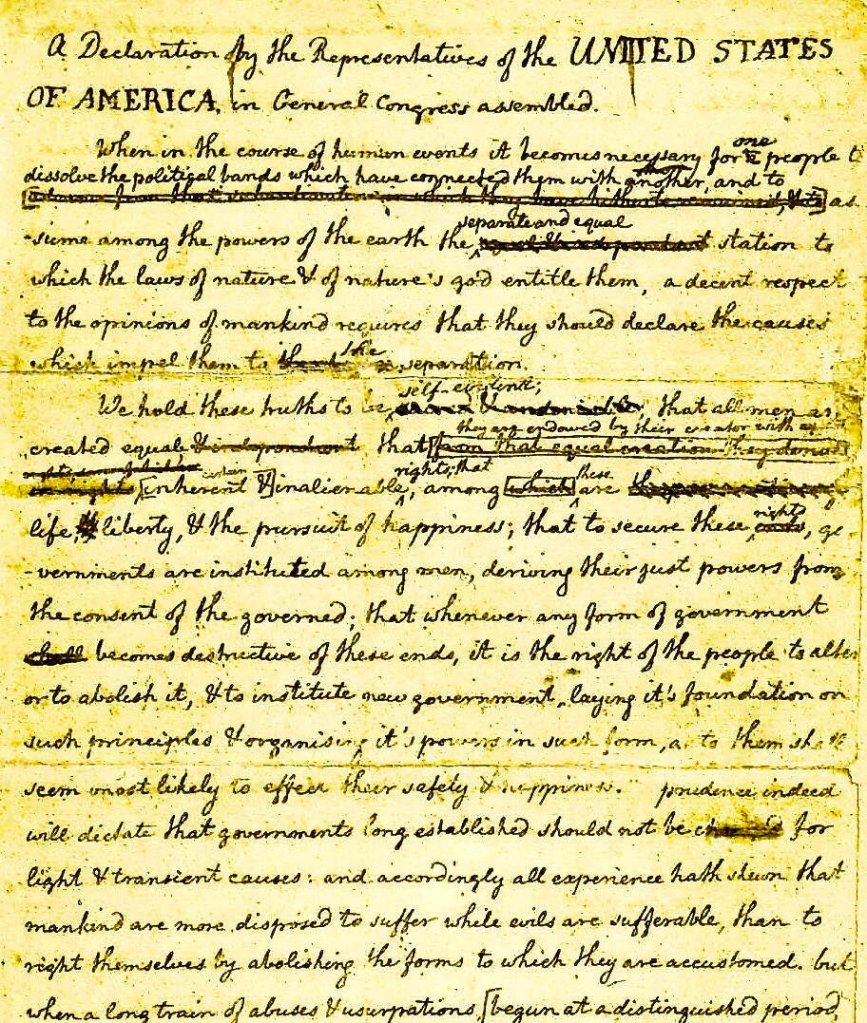 A Declaration by the Representatives of the UNITED STATES
OF AMERICA, in General Congress assembled.
When in the course of human events it becomes necessary for one people t
dissolve the political bands which have connected them with another, and to
as
separate and equal
-sume among the powers of the earth the station to
which the laws of nature & of nature's god entitle them, a decent respect
to the opinions of mankind requires that they should declare the causes
the
which impel them to separation.
self-evident;
We hold these truths to be , that all men ar
they are endowed by their creator with
created equal & independent that [from that equal creation they derive
rights; that
certain these
[inherent &] inalienable, among [which] are
rights
life, liberty, & the pursuit of happiness; that to secure these ends, go
-vernments are instituted among men, deriving their just powers from
the consent of the governed; that whenever any form of government
shall becomes destructive of these ends, it is the right of the people to alter
or to abolish it, & to institute new government, laying it's foundation on
such principles & organising it's powers in such form, as to them shall
seem most likely to effect their safety & happiness. prudence indeed
will dictate that governments long established should not be for
light & transient causes: and accordingly all experience hath shewn that
mankind are more disposed to suffer while evils are sufferable, than to
right themselves by abolishing the forms to which they are accustomed. but
when a long train of abuses & usurpations, [begun at a distinguished period,